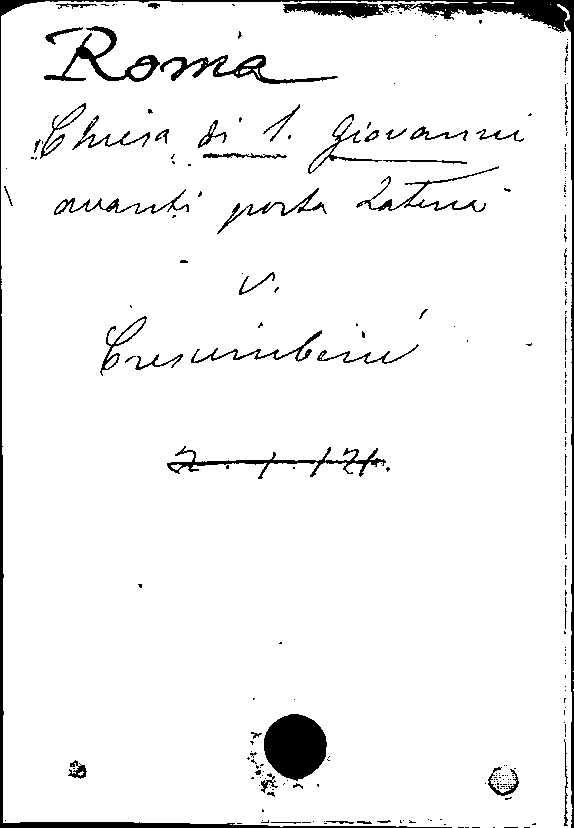 Roma
Chiesa di S. Giovanni
avanti porta Latina
v.
Crescimbeni